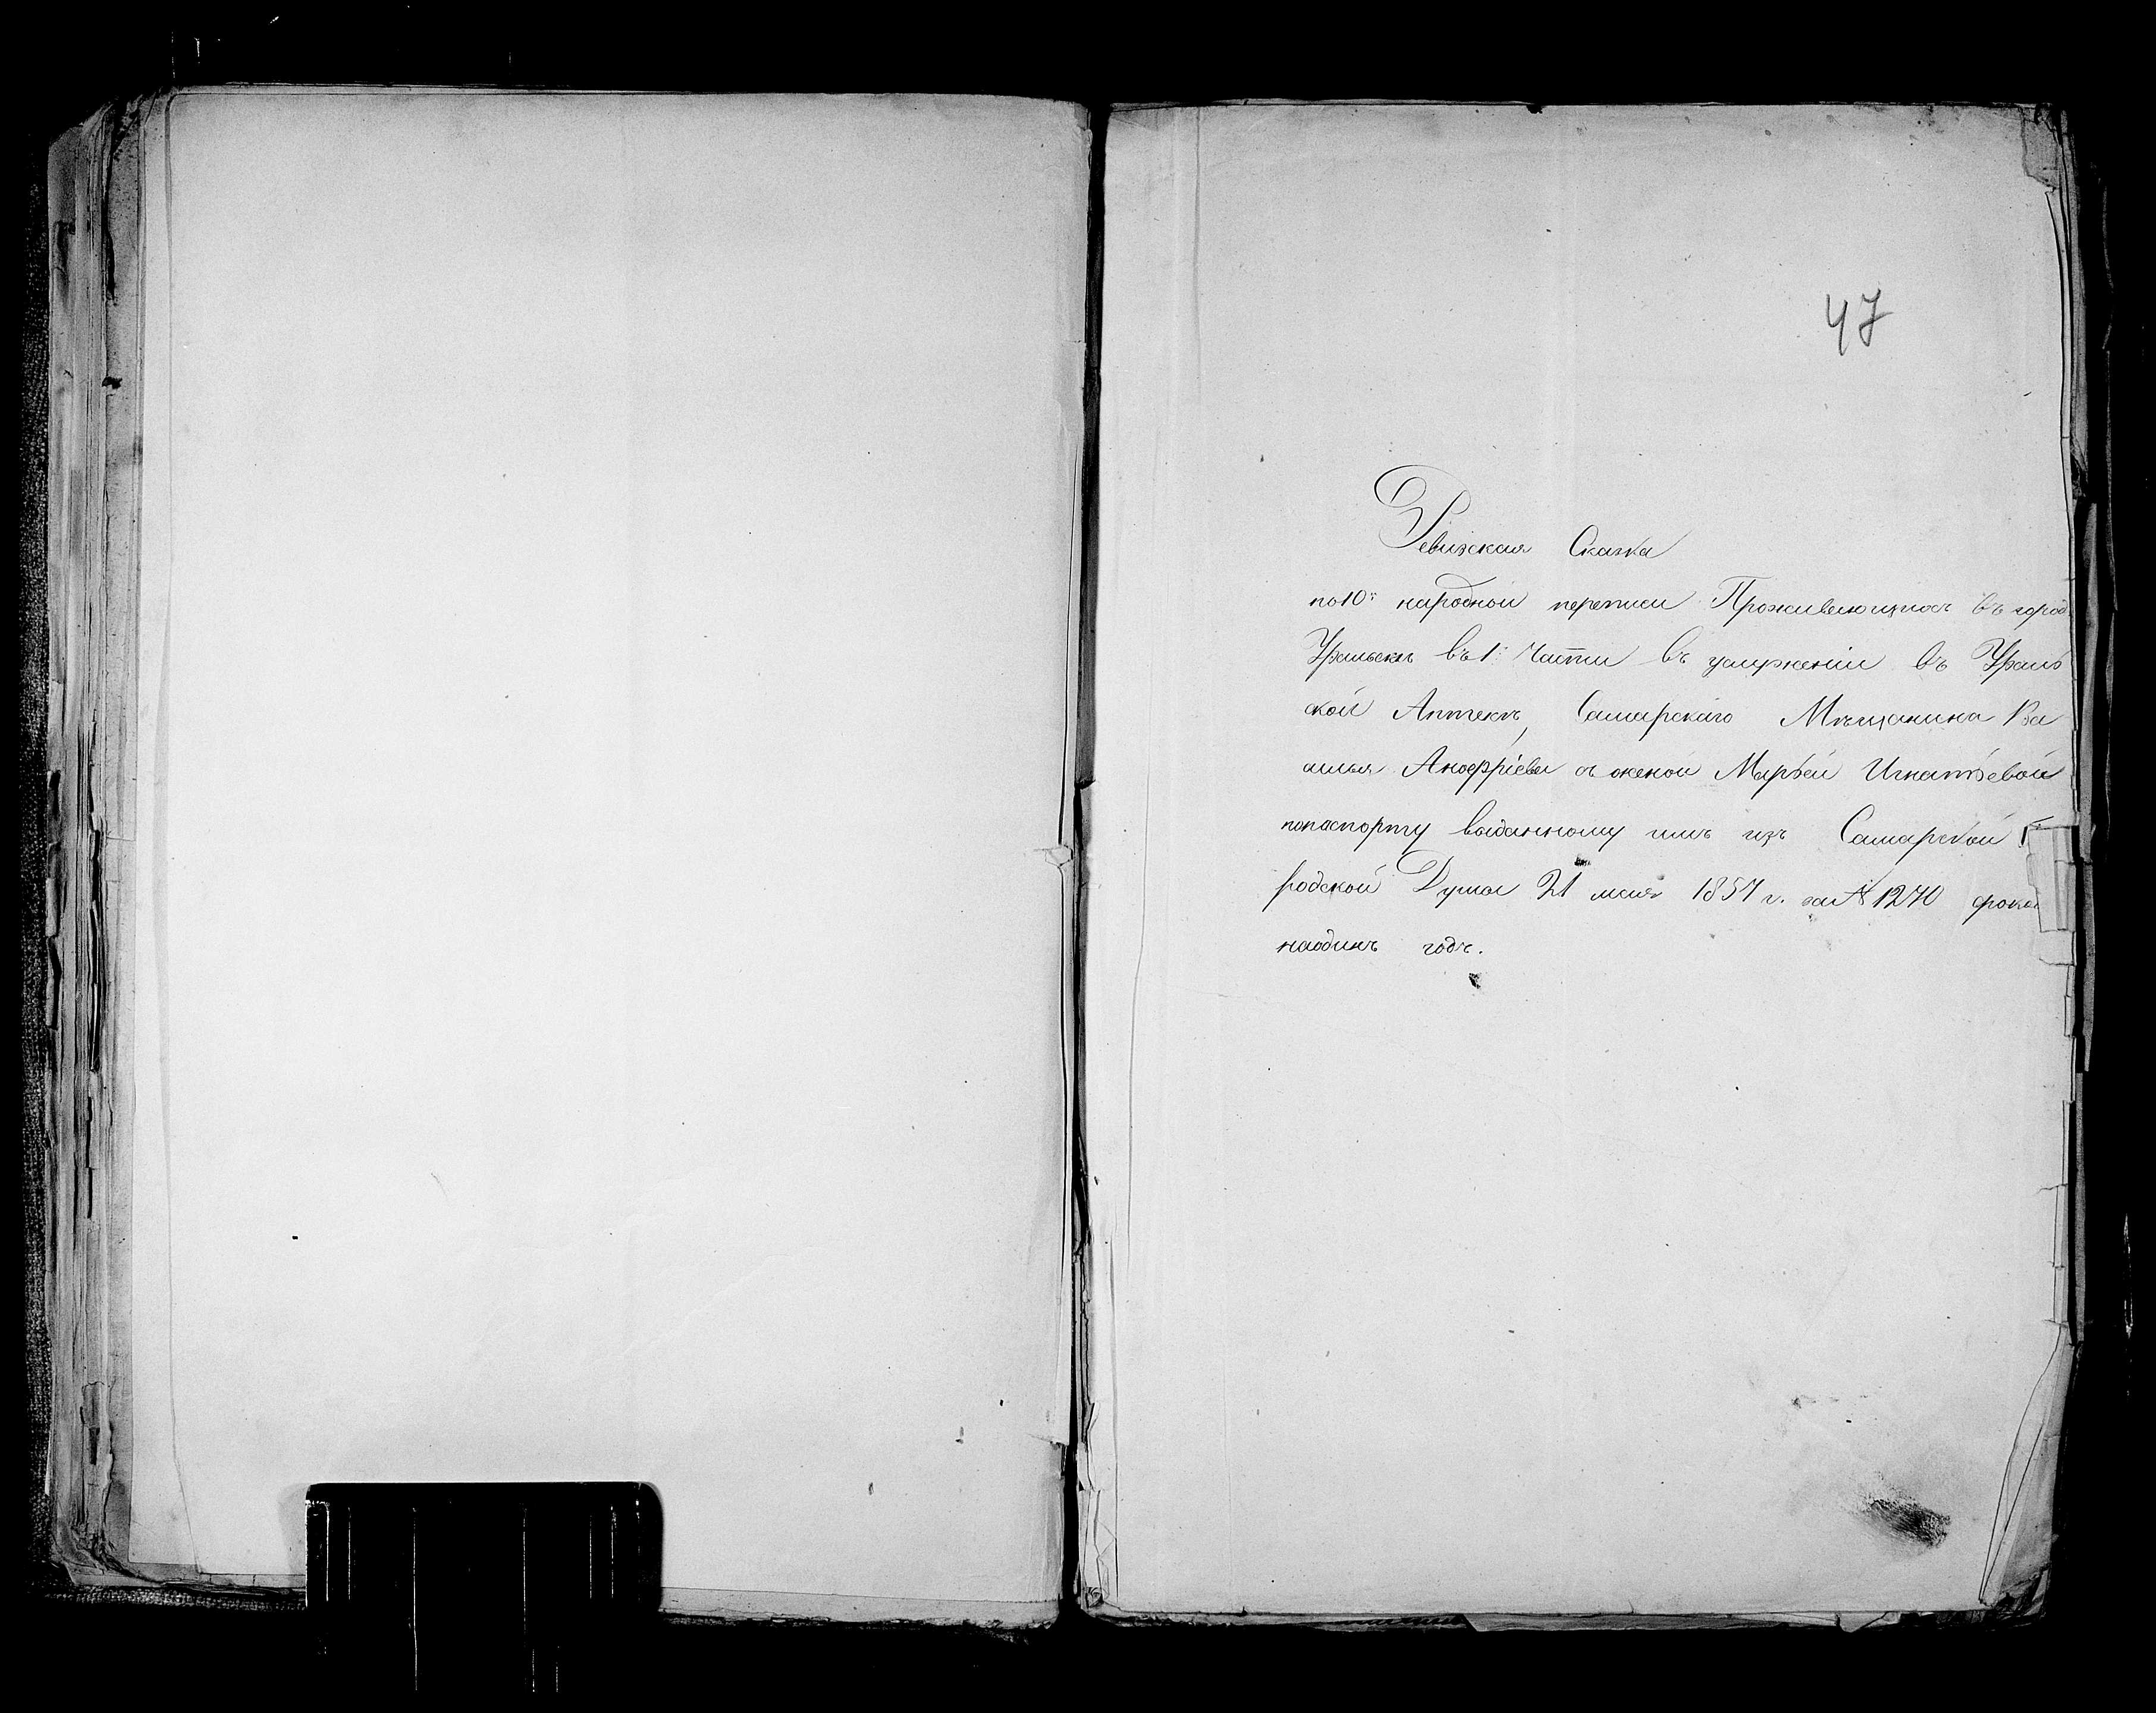 47
Ревизская Сказка
по 10й народной переписи Проживающихъ въ город
Уральскѣ въ 1й Части въ услуженіи въ Ураль
ской Аптекѣ, Самарскаго Мѣщанина Ва
силья Аноффріева съ женой Марьей Игнатьевой
попаспорту выданному имъ изъ Самарской
родской Думы 21 мая 1857 г. за № 1270 срока
наодинъ годъ.